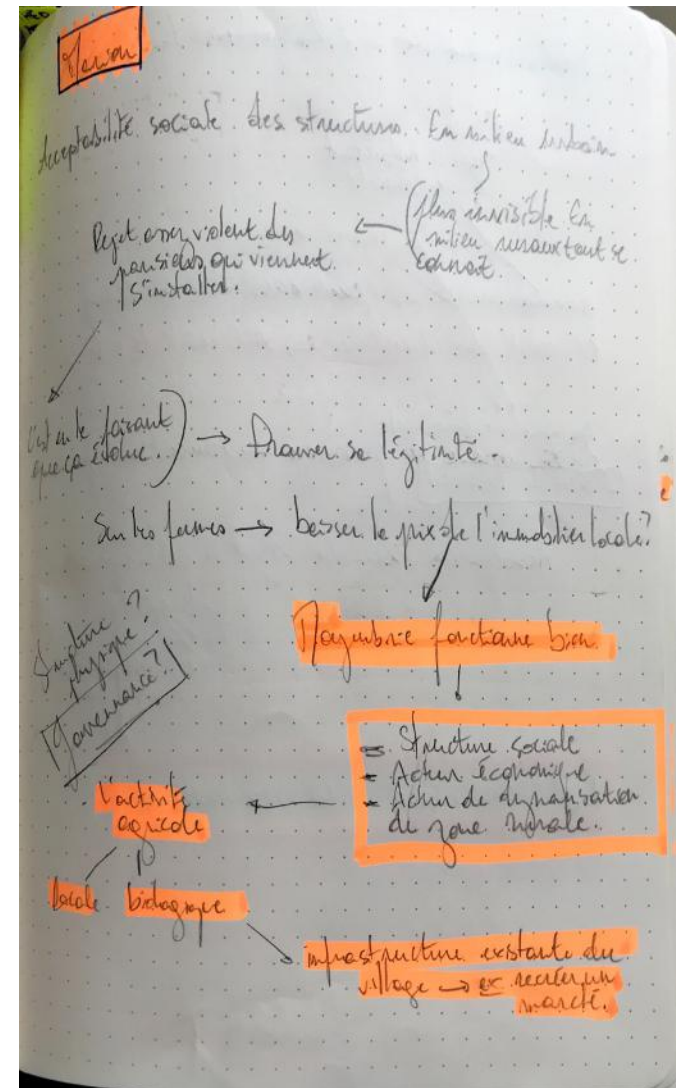 Acceptabilité sociale des structures. En milieu urbain
(plus invisible En
milieu ruraux tout se
connait.
Rejet assez violent des
parisiens qui viennent
s'installer.
C'est en le faisant
que ça évolue.
→ Prouver sa légitimité.
Sur les fermes → baisser le prix de l'immobilier locale?
Moyembrie fonctionne bien.
Structure?
physique?
Gouvernance?
- Structure sociale
- Acteur économique
- Acteur de dynamisation
de zone rurale.
L'activité
agricole
locale biologique
infrastructure existante du
village → ex recréer un
marché.